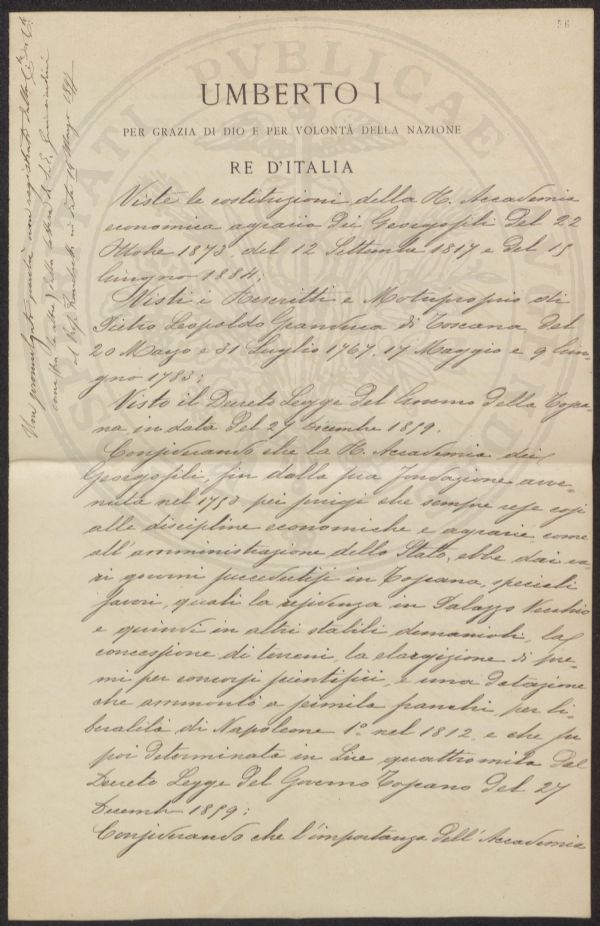 56
UMBERTO I
PER GRAZIA DI DIO E PER VOLONTÀ DELLA NAZIONE
RE D'ITALIA
Viste le costituzioni della R. Accademia
economica agraria dei Georgofili del 22
Ottobre 1873, del 12 Settembre 1817 e del 15
Giugno 1884;
Visti i Rescritti e Motuproprio di
Pietro Leopoldo Granduca di Toscana del
20 Marzo e 31 Luglio 1767, 17 Maggio e 9 Giu-
gno 1783;
Visto il Decreto Legge del Governo della Tosca-
na in data del 27 Decembre 1859.
Considerando che la R. Accademia dei
Georgofili, fin dalla sua fondazione avve-
nuta nel 1753 pei servigi che sempre rese così
alle discipline economiche e agrarie, come
all'amministrazione dello Stato, ebbe dai va-
ri governi succedutisi in Toscana, speciali
favori, quali la residenza in Palazzo Vecchio
e quindi in altri stabili demaniali, la
concessione di terreni, la elargizione di pre-
mi per concorsi scientifici, e una dotazione
che ammontò a seimila franchi, per li-
beralità di Napoleone 1º nel 1812, e che fu
poi determinata in Lire quattromila dal
Decreto Legge del Governo Toscano del 27
Decembre 1859;
Considerando che l'importanza dell'Accademia
Non promulgato perchè non registrato dalla